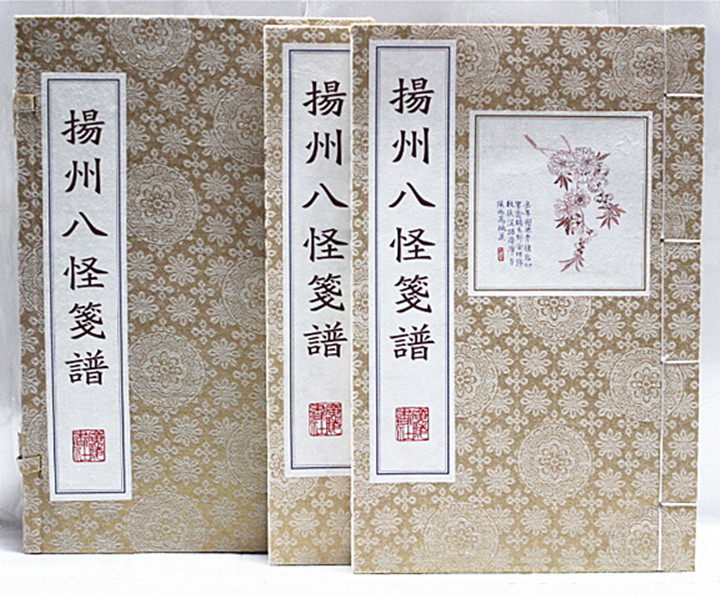 揚州八怪箋譜
揚州八怪箋譜
揚州八怪箋譜